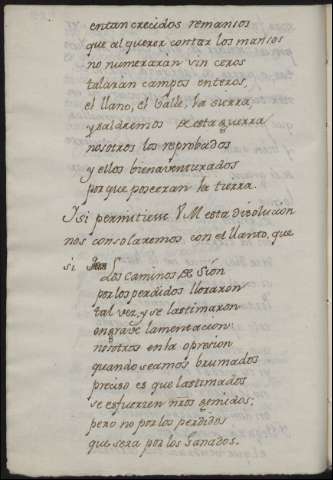 entan crecidos remansos
que al querer contar los mansos
no numeraran vin ceros
talarán campos enteros,
el llano, el Valle, la sierra,
y saldremos de esta guerra
nosotros los reprobados
y ellos bienaventurados
por que poseeran la tierra.
Y si permitiere VM esta disolucion
nos consolaremos con el llanto, que
si
Los caminos de Sión
por los perdidos lloraron
tal vez, y se lastimaron
en grave lamentacion:
nosotros en la opresion
quando seamos brumados
preciso es que lastimados
se esfuerzen nros gemidos;
pero no por los perdidos
que sera por los Ganados.